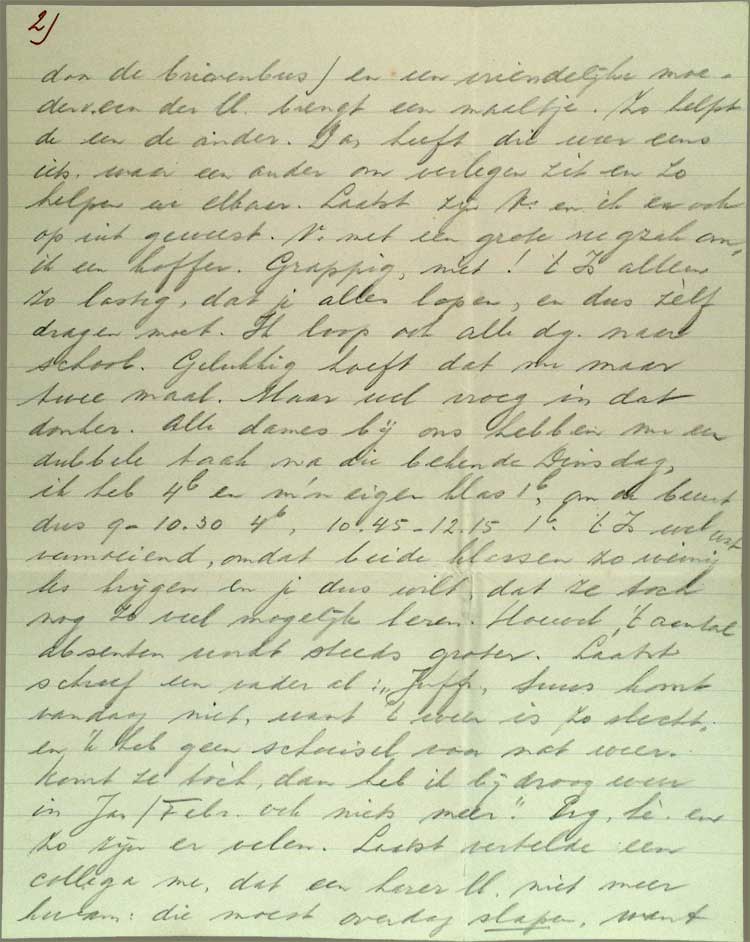 2)
don de brievenbus) en een vriendelijke moe-
der v. een der ll. brengt een maaltje. Zo helpt
de een de ander. Dan heeft die weer eens
iets waar een ander om verlegen zit en zo
helpen we elkaar. Laatst zijn V. en ik er ook
op uit geweest. V. met een grote rugzak om,
ik een koffer. Grappig, niet! 't Is alleen
zo lastig, dat je alles lopen, en dus zèlf
dragen moet. Ik loop ook alle dg. naar
school. Gelukkig hoeft dat nu maar
twee maal. Maar wel vroeg in dat
donker. Alle dames bij ons hebben nu een
dubbele taak na die bekende Dinsdag,
ik heb 4b en m'n eigen klas 1b, om de beurt
dus 9-10.30 4b, 10.45-12.15 1b. 't Is wel wat
vermoeiend, omdat beide klassen zo weinig
les krijgen en je dus wilt, dat ze toch
nog zo veel mogelijk leren. Hoewel, 't aantal
absenten wordt steeds groter. Laatst
schreef een vader al: "Juffr, Suus komt
vandaag niet, want 't weer is zo slecht,
en 'k heb geen schoeisel voor nat weer.
Komt ze tòch, dan heb ik bij droog weer
in Jan/Febr. ook niets meer". Erg, hè. en
zo zijn er velen. Laatst vertelde een
collega me, dat een harer ll. niet meer
kwam: die moest overdag slapen, want